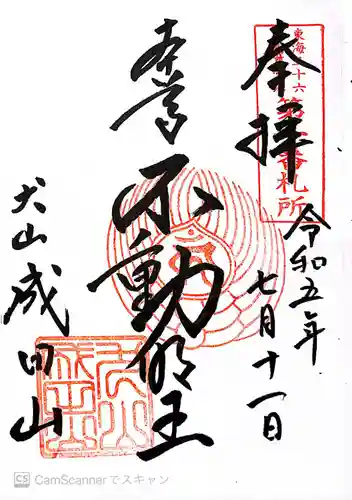 東海三十六
第一番札所
奉拝
令和五年
七月十一日
本尊
不動明王
犬山成田山
CS CamScannerでスキャン